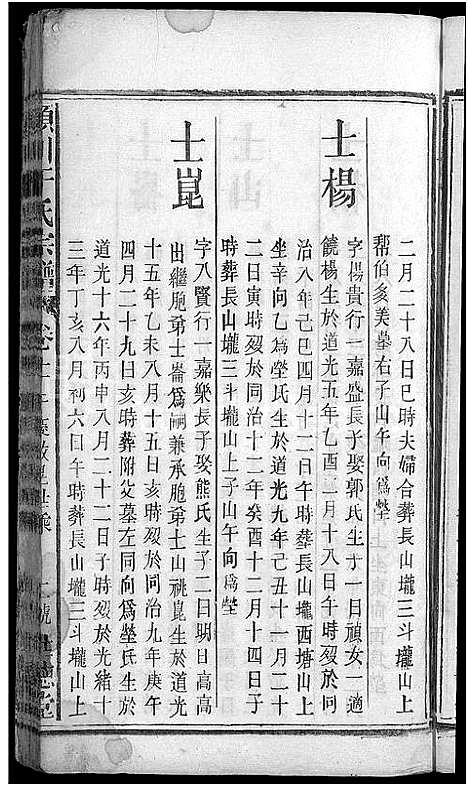 二月二十八日巳時夫婦合葬長山壠三斗壠山上
幇伯多美墓右子山午向爲塋
士楊
字楊貴行一嘉盛長子娶郭氏生子一日頑女一適
饒楊生於道光五年乙酉一月十八日午時歿於同
治八年己巳四月十二日午時葬長山壠西塘山上
坐辛向乙爲塋氏生於道光九年己丑十一月二十
二日寅時歿於同治十二年癸酉十二月十四日子
時葬長山壠三斗壠山上子山午向爲塋
士崑
字八賢行一嘉樂長子娶熊氏生子二日明日高高
出繼胞弟士崙爲嗣兼承胞弟士山祧崑生於道光
十五年乙未八月十五日亥時歿於同治九年庚午
四月二十九日亥時葬附父墓左同向爲塋氏生於
道光十六年丙申八月二十二日子時歿於光緒十
三年丁亥八月初六日午時葬長山壠三斗壠山上
氏宗譜